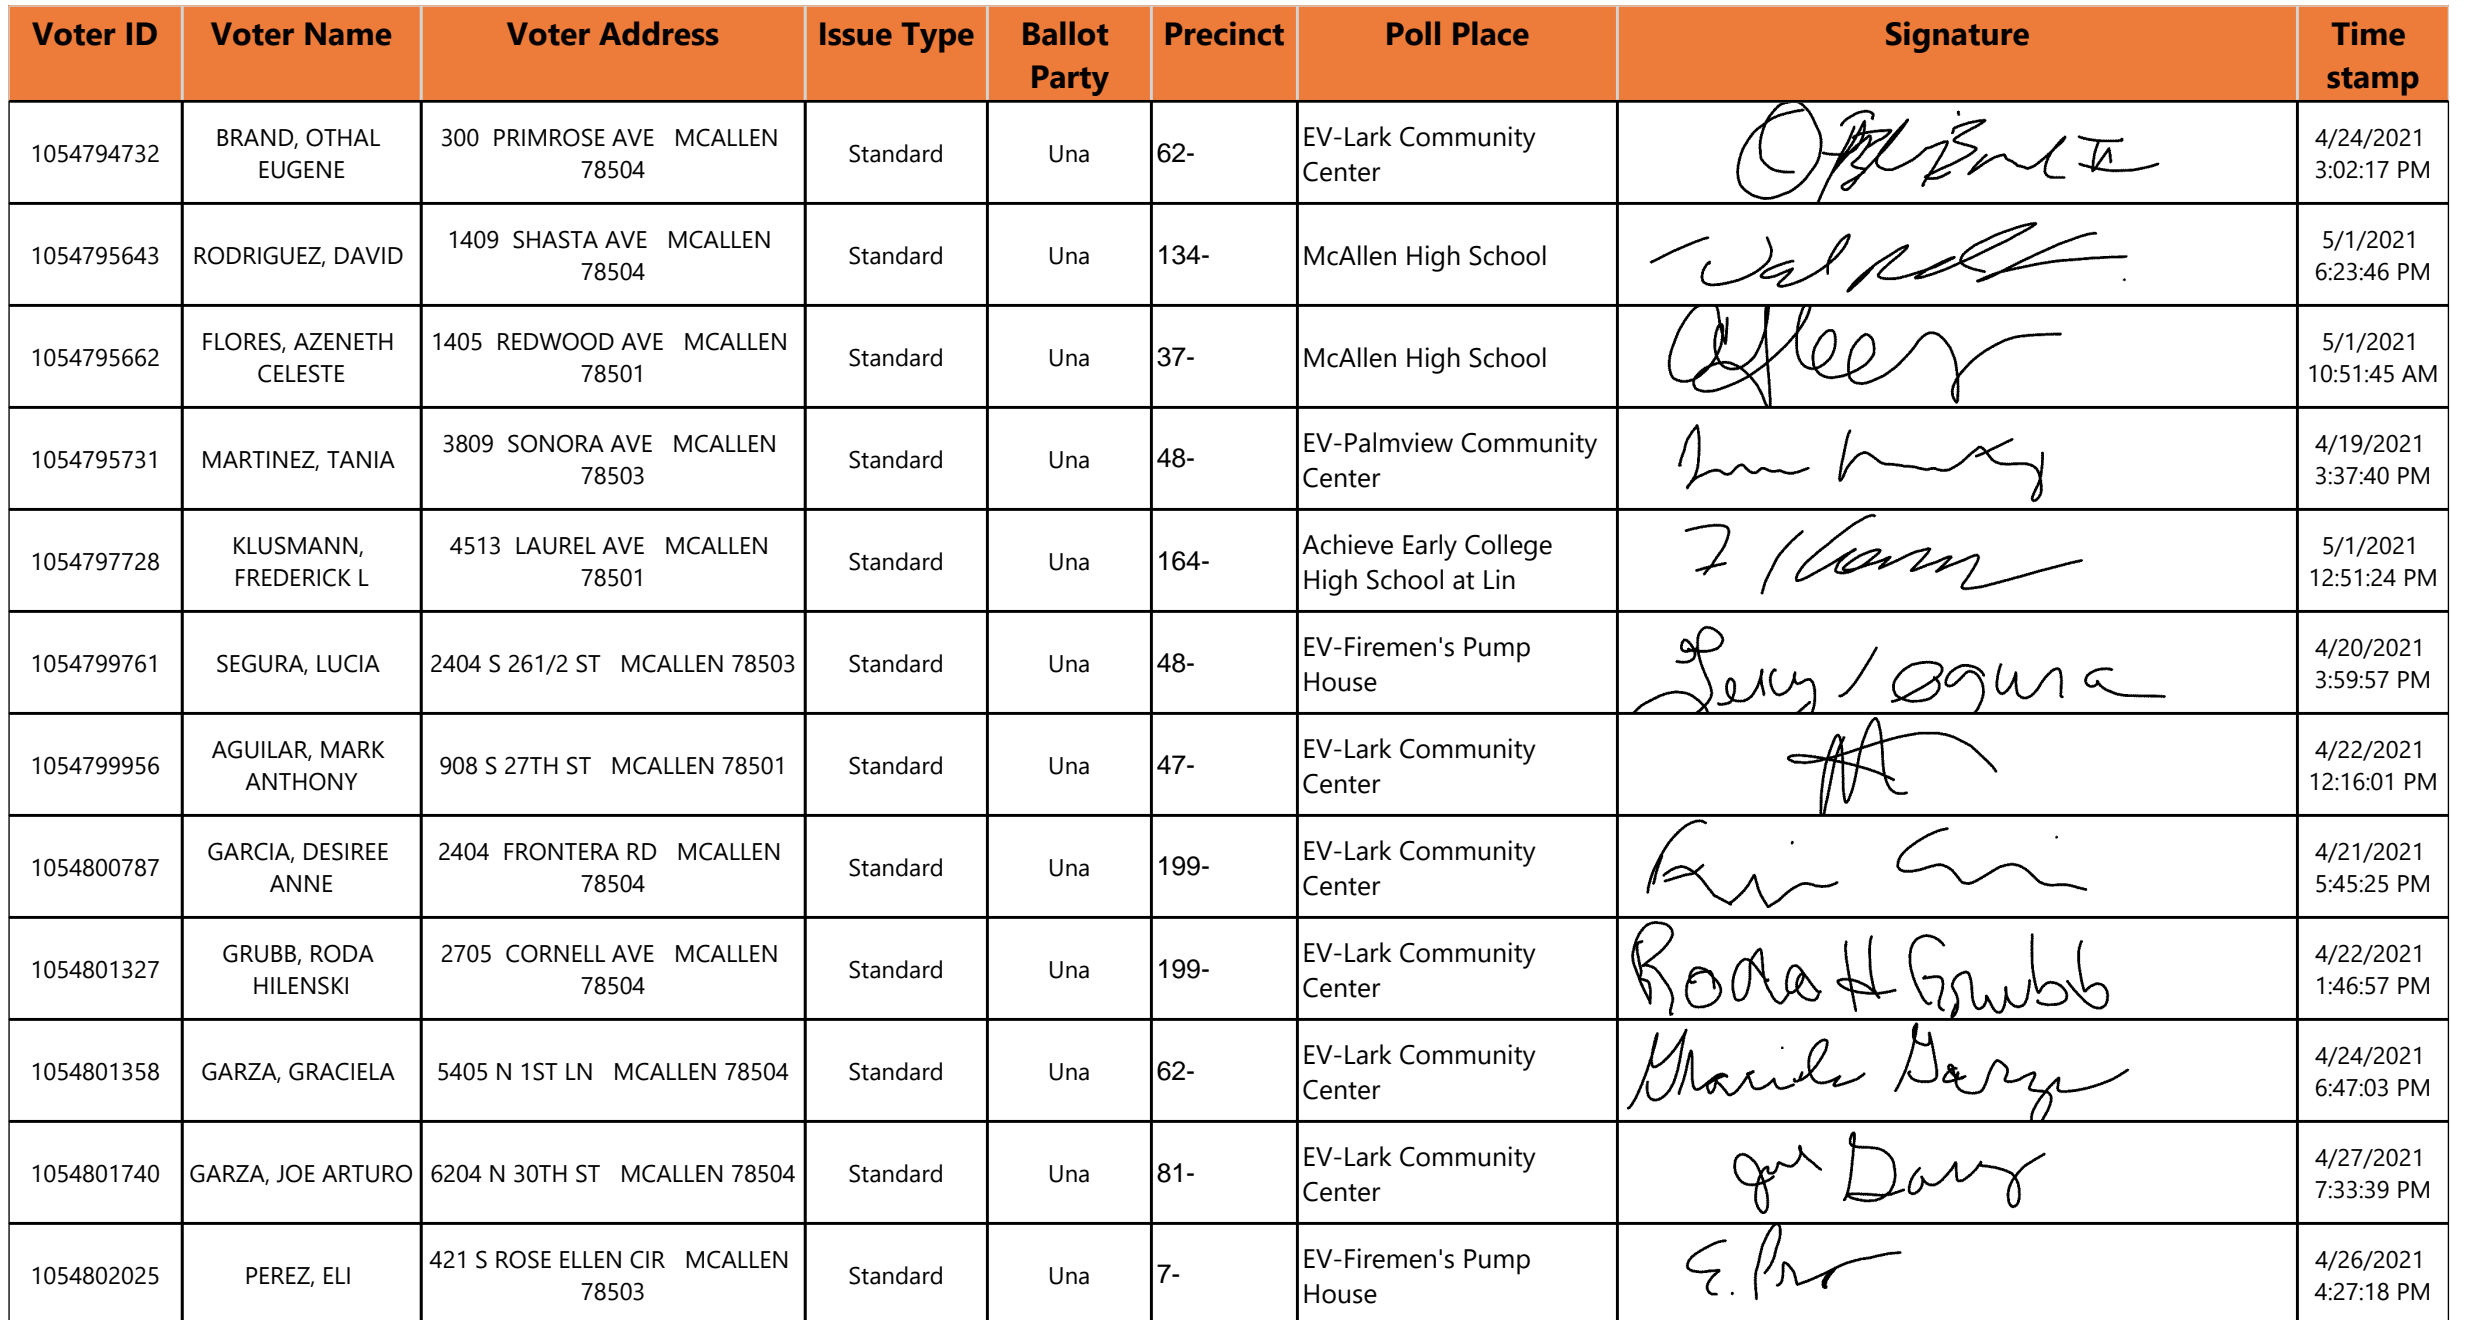 Voter ID Voter Name Voter Address Issue Type Ballot Party Precinct Poll Place Signature Time stamp
1054794732 BRAND, OTHAL EUGENE 300 PRIMROSE AVE MCALLEN 78504 Standard Una 62- EV-Lark Community Center 4/24/2021 3:02:17 PM
1054795643 RODRIGUEZ, DAVID 1409 SHASTA AVE MCALLEN 78504 Standard Una 134- McAllen High School 5/1/2021 6:23:46 PM
1054795662 FLORES, AZENETH CELESTE 1405 REDWOOD AVE MCALLEN 78501 Standard Una 37- McAllen High School 5/1/2021 10:51:45 AM
1054795731 MARTINEZ, TANIA 3809 SONORA AVE MCALLEN 78503 Standard Una 48- EV-Palmview Community Center 4/19/2021 3:37:40 PM
1054797728 KLUSMANN, FREDERICK L 4513 LAUREL AVE MCALLEN 78501 Standard Una 164- Achieve Early College High School at Lin 5/1/2021 12:51:24 PM
1054799761 SEGURA, LUCIA 2404 S 261/2 ST MCALLEN 78503 Standard Una 48- EV-Firemen's Pump House 4/20/2021 3:59:57 PM
1054799956 AGUILAR, MARK ANTHONY 908 S 27TH ST MCALLEN 78501 Standard Una 47- EV-Lark Community Center 4/22/2021 12:16:01 PM
1054800787 GARCIA, DESIREE ANNE 2404 FRONTERA RD MCALLEN 78504 Standard Una 199- EV-Lark Community Center 4/21/2021 5:45:25 PM
1054801327 GRUBB, RODA HILENSKI 2705 CORNELL AVE MCALLEN 78504 Standard Una 199- EV-Lark Community Center Roda H Grubb 4/22/2021 1:46:57 PM
1054801358 GARZA, GRACIELA 5405 N 1ST LN MCALLEN 78504 Standard Una 62- EV-Lark Community Center Graciela Garza 4/24/2021 6:47:03 PM
1054801740 GARZA, JOE ARTURO 6204 N 30TH ST MCALLEN 78504 Standard Una 81- EV-Lark Community Center Joe Garza 4/27/2021 7:33:39 PM
1054802025 PEREZ, ELI 421 S ROSE ELLEN CIR MCALLEN 78503 Standard Una 7- EV-Firemen's Pump House 4/26/2021 4:27:18 PM